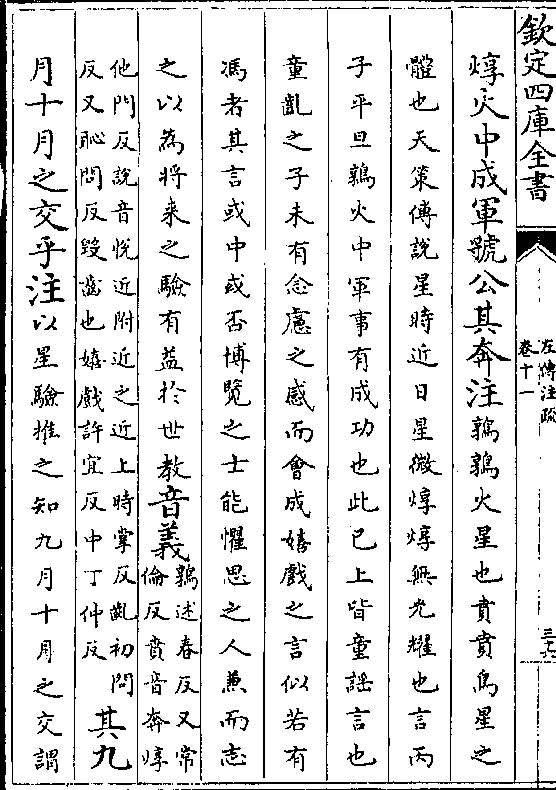 欽定四庫全書
左傳注疏
卷十一
三十六
焞火中成軍虢公其奔注鶉鶉火星也賁賁鳥星之
體也天策傅說星時近日星微焞焞無光耀也言丙
子平旦鶉火中軍事有成功也此已上皆童謡言也
童齓之子未有念慮之感而會成嬉戲之言似若有
馮者其言或中或否博覽之士能懼思之人兼而志
之以為將來之驗有益於世教音義鶉述春反又常
倫反賁音奔焞
他門反説音悦近附近之近上時掌反齓初問
反又恥問反毁齒也嬉戲許宜反中丁仲反
其九
月十月之交乎注以星驗推之知九月十月之交謂